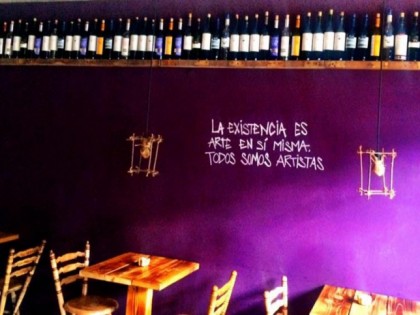 LA EXISTENCIA ES
ARTE EN SÍ MISMA.
TODOS SOMOS ARTISTAS